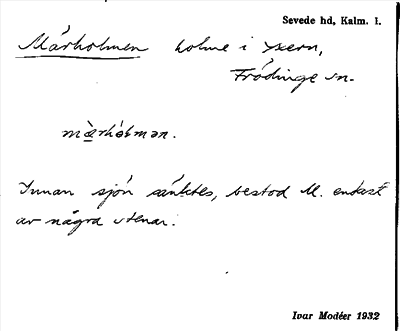 Sevede hd, Kalm. l.
Mårholmen holme i Yxern,
Frödinge sn.
mårhålmən.
Innan sjön sänktes, bestod M. endast
av några stenar.
Ivar Modéer 1932